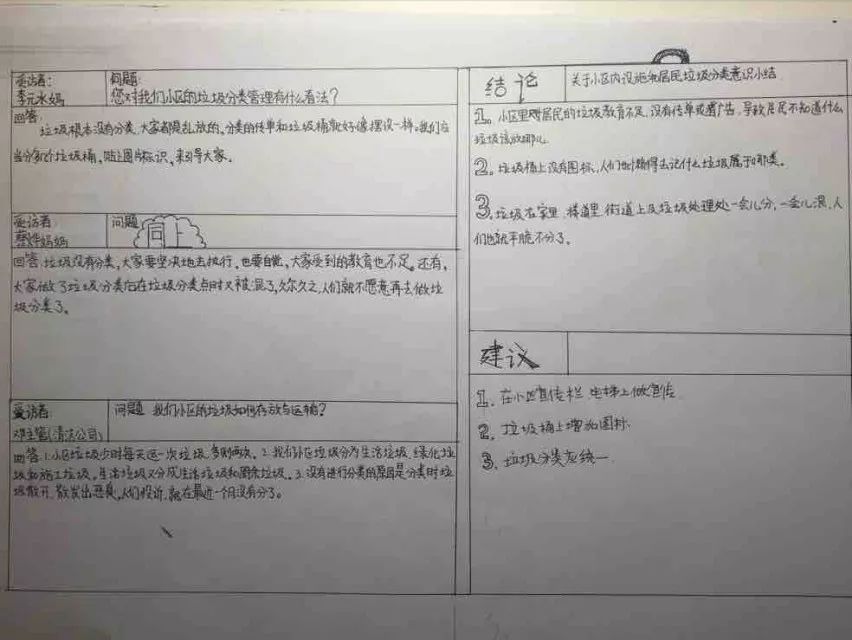 受访者:
李元水妈
问题:
您对我们小区的垃圾分类管理有什么看法?
回答:
垃圾根本没有分类,大家都是乱放的。分类的传单和垃圾桶就好像摆设一样。我们应
当分几个垃圾桶,贴上图片标识,来引导大家。
受访者
蔡烨妈妈
问题
同上
回答:垃圾没有分类,大家要坚决地去执行,也要自觉,大家受到的教育也不足。还有,
大家做了垃圾分类后在垃圾分类点时又被混了,久尔久之,人们就不愿意再去做垃
圾分类了。
受访者:
邓主管(清洁公司)
问题 我们小区的垃圾如何存放与运输?
回答:1.小区垃圾少时每天运一次垃圾,多则两次。2.我们小区垃圾分为生活垃圾、绿化垃
圾和施工垃圾。生活垃圾又分成生活垃圾和厨余垃圾。3.没有进行分类的原因是分类时垃
圾散开,散发出恶臭,人们投诉,就在最近一个月没有分了。
结论
关于小区内设施和居民垃圾分类意识小结
1。小区里对居民的垃圾教育不足,没有传单或着广告,导致居民不知道什么
垃圾该放哪儿
2。垃圾桶上没有图标,人们也懒得去记什么垃圾属于哪类。
3.垃圾在家里、楼道里、街道上及垃圾处理处一会儿分,一会儿混,人
们也就干脆不分了。
建议
1. 在小区宣传栏、电梯上做宣传
2. 垃圾桶上增加图标.
3. 垃圾分类应统一